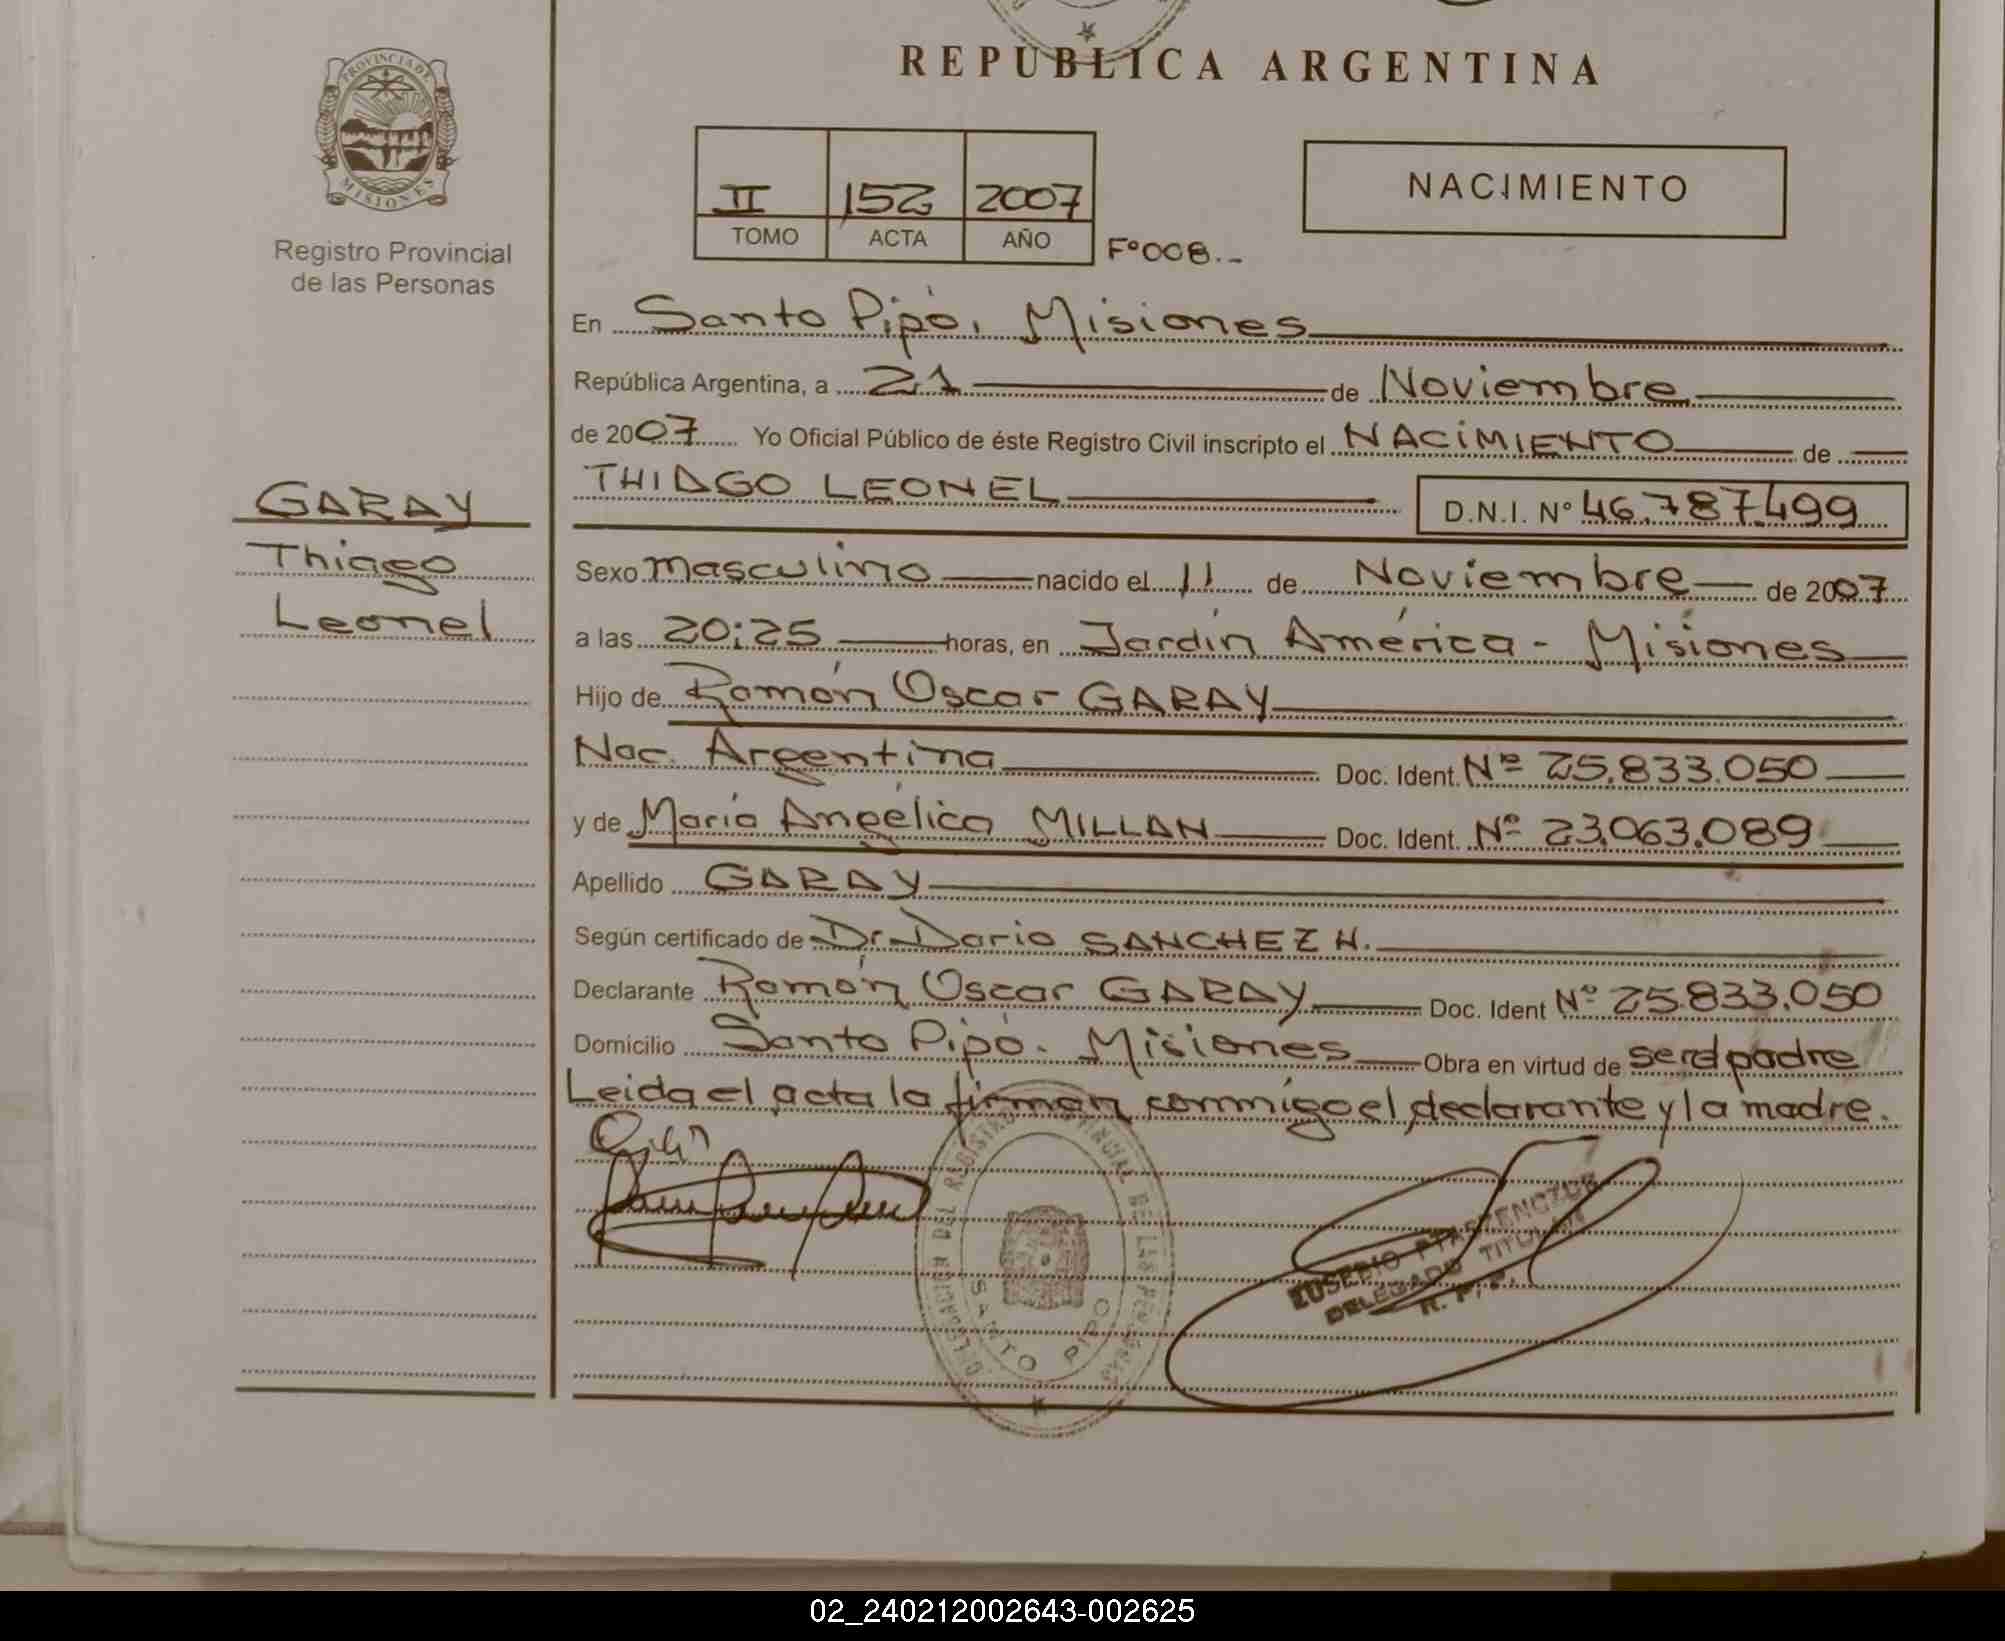 REPUBLICA ARGENTINA
PROVINCIA DE
MISIONES
Registro Provincial
de las Personas
II 152 2007
TOMO ACTA AÑO
Fº008.-
NACIMIENTO
En Santo Pipó, Misiones
República Argentina, a 21 de Noviembre
de 2007 Yo Oficial Público de éste Registro Civil inscripto el NACIMIENTO de
THIAGO LEONEL D.N.I. Nº 46.787.499
GARAY
Thiago
Leonel
Sexo masculino nacido el 11 de Noviembre de 2007
a las 20:25 horas, en Jardín América - Misiones
Hijo de Ramón Oscar GARAY
Nac. Argentina Doc. Ident. Nº 25.833.050
y de María Angélica MILLAN Doc. Ident. Nº 23.063.089
Apellido GARAY
Según certificado de Dr Dario SANCHEZ H.
Declarante Ramón Oscar GARAY Doc. Ident Nº 25.833.050
Domicilio Santo Pipó. Misiones Obra en virtud de ser el padre
Leida el acta la firman conmigo el declarante y la madre.
DELEGACION DEL REGISTRO PROVINCIAL DE LAS PERSONAS
SANTO PIPO
EUSEBIO
DELEGADO TITULAR
R. P. P.
02_240212002643-002625